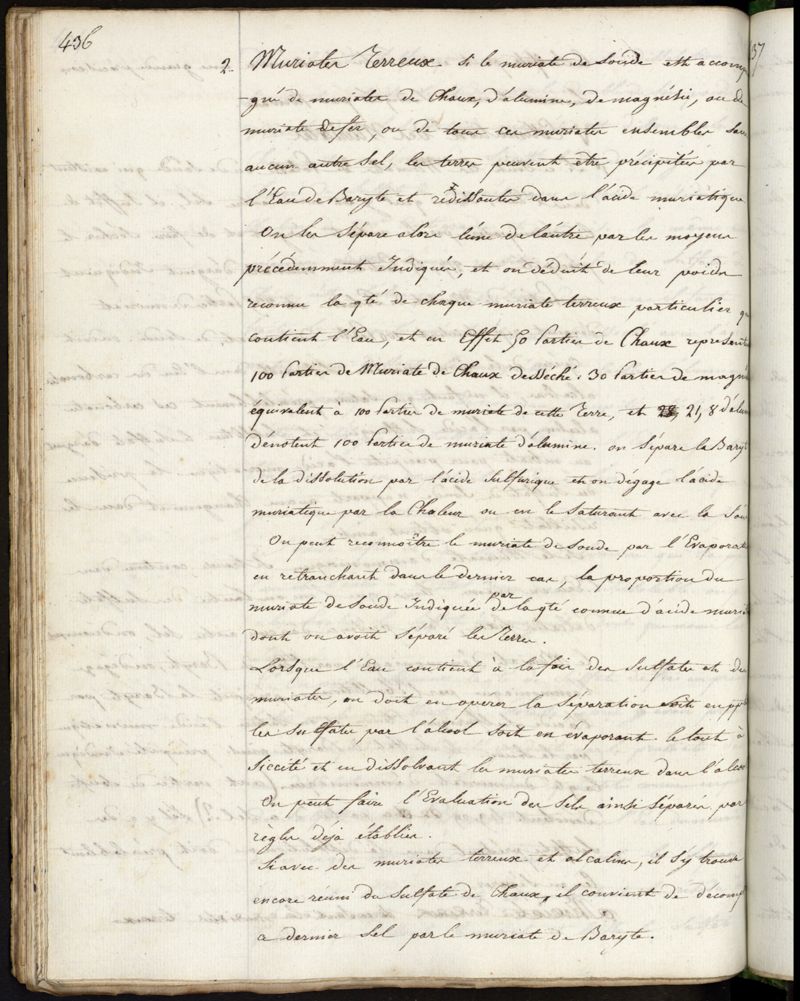 436
2. Muriates Terreux. Si le muriate de Soude est accomp
-gné de muriates de Chaux, d'alumine, de magnésie, ou de
muriate de fer, ou de tous ces muriates ensembles Sans
aucun autre Sel, les terres peuvent etre précipitées par
l'Eau de Baryte et redissoutes dans l'acide muriatique
On les Sépare alors l'une de l'autre par les moyens
précédemment Indiqués, et on déduit de leur poids
reconnu la qté de chaque muriate terreux particulier q
contient l'Eau, et en Effet 50 Parties de Chaux représent
100 Parties de Muriate de Chaux desséché; 30 Parties de magné
équivalent à 100 Parties de muriate de cette Terre, et 21,8 d'alu
dénotent 100 Parties de muriate d'alumine. on Sépare la Baryt
de la dissolution par l'acide Sulfurique et on dégage l'acide
muriatique par la Chaleur ou en le Saturant avec la Sou
On peut reconnoître le muriate de Soude par l'Evaporat
en retranchant dans le dernier cas, la proportion du
muriate de Soude Indiquée par la qté connue d'acide muri
dont on avoit Séparé les Terres.
Lorsque l'Eau contient à la fois des Sulfates et de
muriates, on doit en operer la Séparation soit en pp
les Sulfates par l'alcool soit en évaporant le tout à
Siccité et en dissolvant les muriates terreux dans l'alcoo
On peut faire l'Evaluation des Sels ainsi Séparés, par
règles déjà établies.
Si avec des muriates terreux et alcalins, il s'y trouve
encore réuni du Sulfate de Chaux, il convient de décomp
ce dernier Sel par le muriate de Baryte.
37